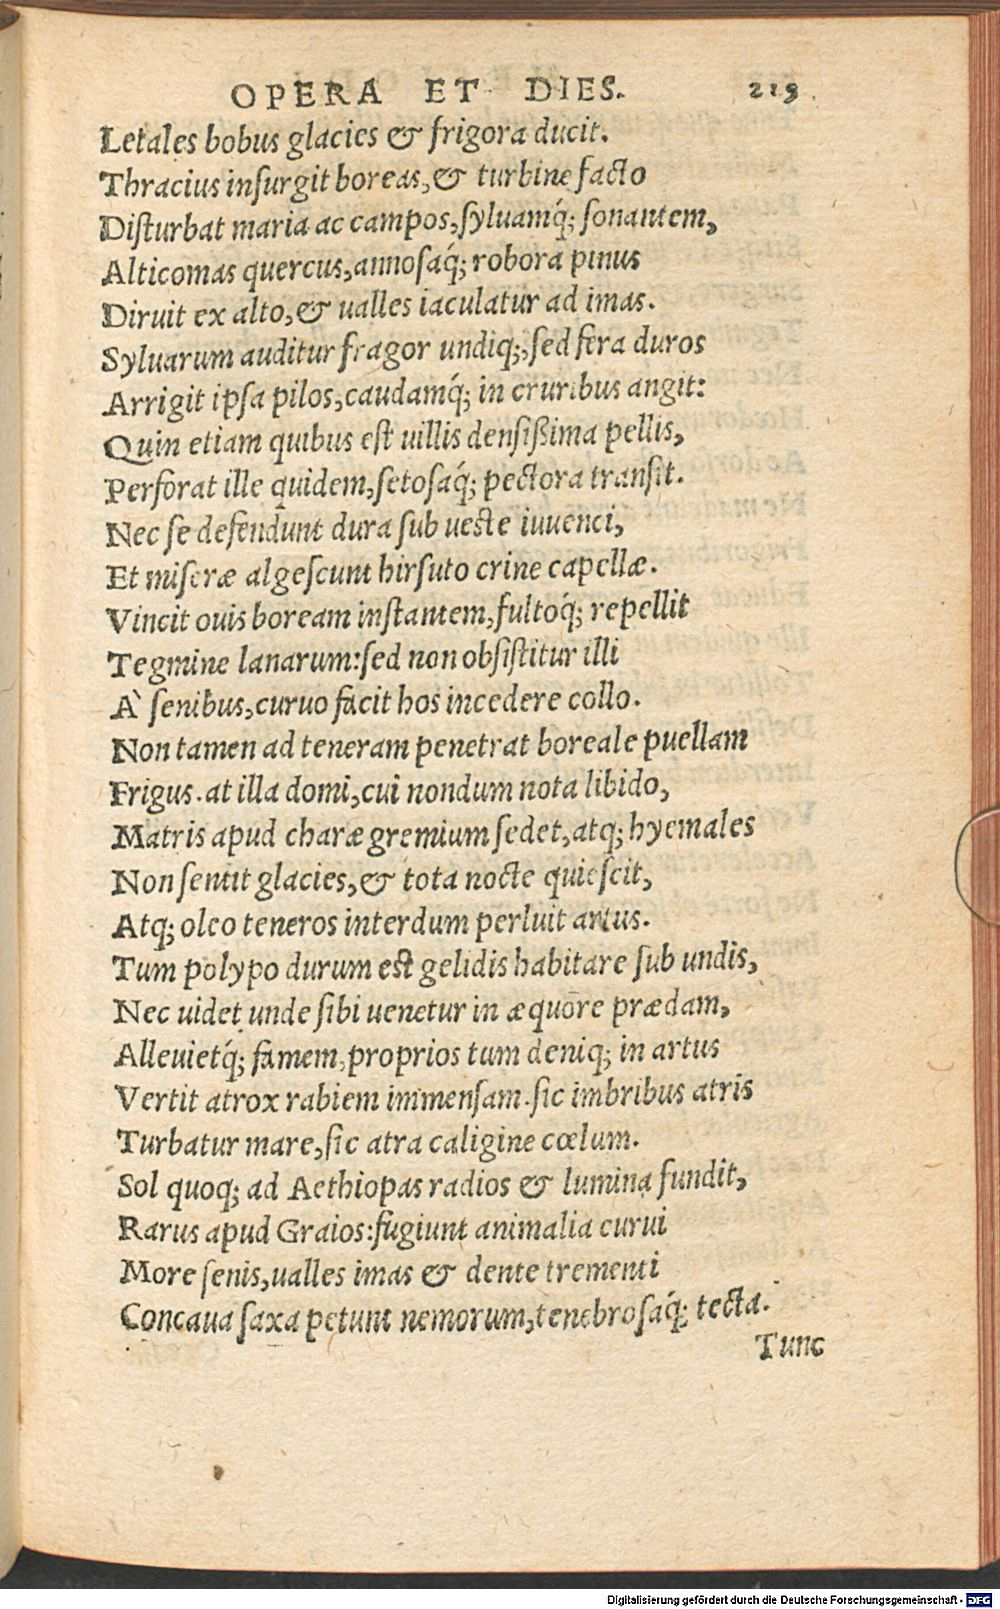 OPERA ET DIES. 219
Letales bobus glacies & frigora ducit.
Thracius inſurgit boreas, & turbine facto
Diſturbat maria ac campos, ſyluamq́; ſonantem,
Alticomas quercus, annoſaq́; robora pinus
Diruit ex alto, & ualles iaculatur ad imas.
Syluarum auditur fragor undiq;, ſed fera duros
Arrigit ipſa pilos, caudamq́; in cruribus angit:
Quin etiam quibus eſt uillis denſiſsima pellis,
Perforat ille quidem, ſetoſaq́; pectora tranſit.
Nec ſe defendunt dura ſub ueſte iuuenci,
Et miſeræ algeſcunt hirſuto crine capellæ.
Vincit ouis boream inſtantem, fultoq́; repellit
Tegmine lanarum: ſed non obſiſtitur illi
A` ſenibus, curuo facit hos incedere collo.
Non tamen ad teneram penetrat boreale puellam
Frigus. at illa domi, cui nondum nota libido,
Matris apud charæ gremium ſedet, atq; hyemales
Non ſentit glacies, & tota nocte quieſcit,
Atq; oleo teneros interdum perluit artus.
Tum polypo durum eſt gelidis habitare ſub undis,
Nec uidet unde ſibi uenetur in æquore prædam,
Alleuietq́; famem, proprios tum deniq; in artus
Vertit atrox rabiem immenſam. ſic imbribus atris
Turbatur mare, ſic atra caligine cœlum.
Sol quoq; ad Aethiopas radios & lumina fundit,
Rarus apud Graios: fugiunt animalia curui
More ſenis, ualles imas & dente trementi
Concaua ſaxa petunt nemorum, tenebroſaq́; tecta.
Tunc
Digitalisierung gefördert durch die Deutsche Forschungsgemeinschaft - DFG